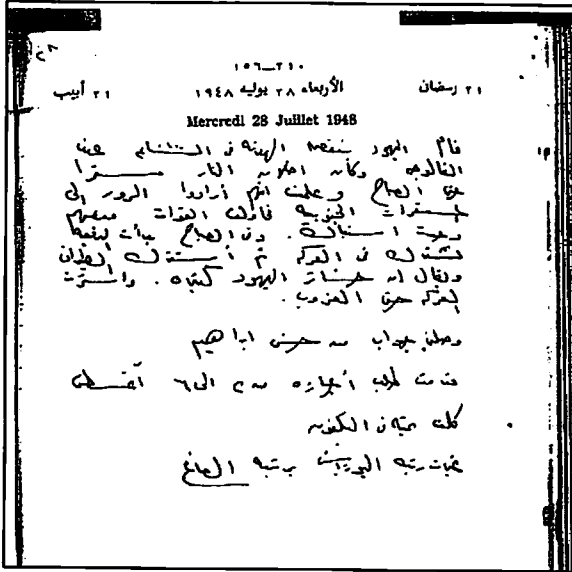 ٢١٠–١٥٦
٢١ رمضان الأربعاء ٢٨ يوليه ١٩٤٨ ٢١ أبيب
Mercredi 28 Juillet 1948
قام اليهود بنقض الهدنة فى الساعة عند
الفالوجه وكان اطلاق النار مستمرا
حتى الصباح وعلمت انهم أرادوا المرور الى
المستعمرات الجنوبيه فحاولت القوات منعهم
وحدث اشتباك. وفى الصباح بدأت المدفعية
تشترك فى المعركه ثم اشترك الطيران
ويقال ان خسائر اليهود كثيره. واستمرت
المعركه حتى الغروب.
وصلنى جواب من حسن ابراهيم
قدمت طلب أجازه من ٢ الى ٦ أغسطس
كلمت بالتليفون
رتبة اليوزباشى برتبة الصاغ